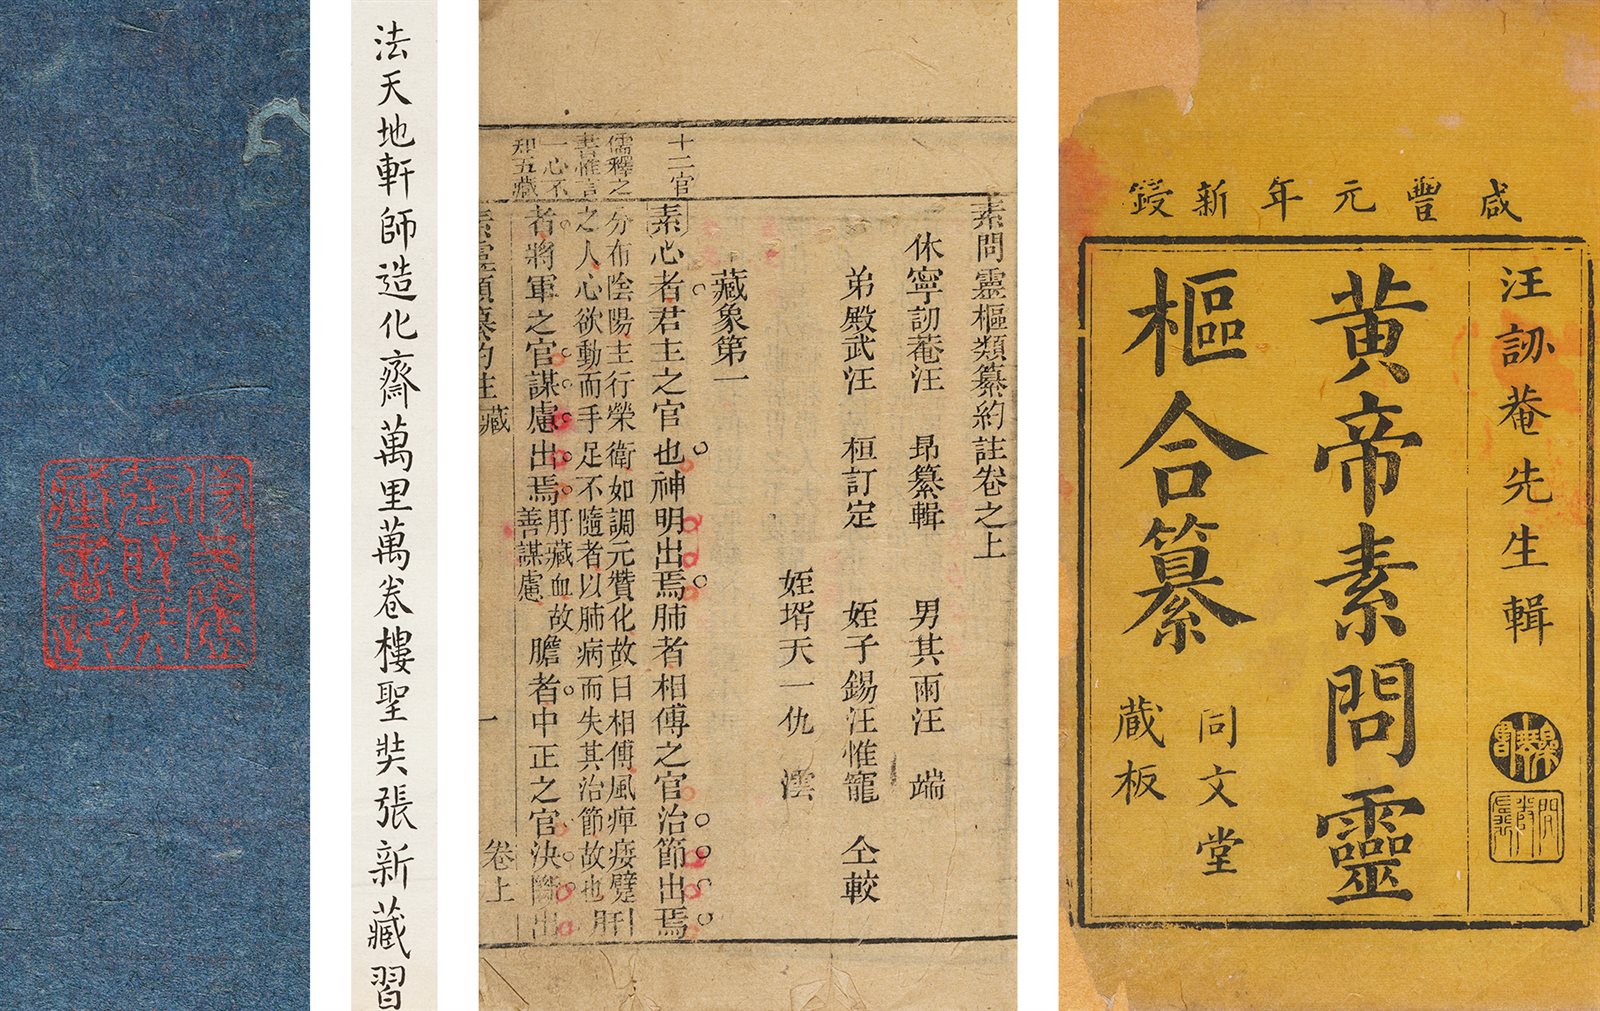 咸豐元年新鋟
汪訒菴先生輯
黄帝素問靈
樞合纂
同文堂
蔵板
素問靈樞類纂約註卷之上
休寧訒菴汪 昂纂輯 男其兩汪 端
弟殿武汪 桓訂定 姪子錫汪惟寵 仝較
姪壻天一仇 澐
藏象第一
十二官
素心者君主之官也神明出焉肺者相傅之官治節出焉
儒釋之
分布陰陽主行榮衛如調元贊化故曰相傅風痺痿躄肝
書惟言
之人心欲動而手足不隨者以肺病而失其治節故也
一心不
知五藏
者將軍之官謀慮出焉肝藏血故善謀慮膽者中正之官決斷出
素靈類纂約註 藏 一 卷上
法天地軒師造化齋萬里萬卷樓聖奘張新藏習